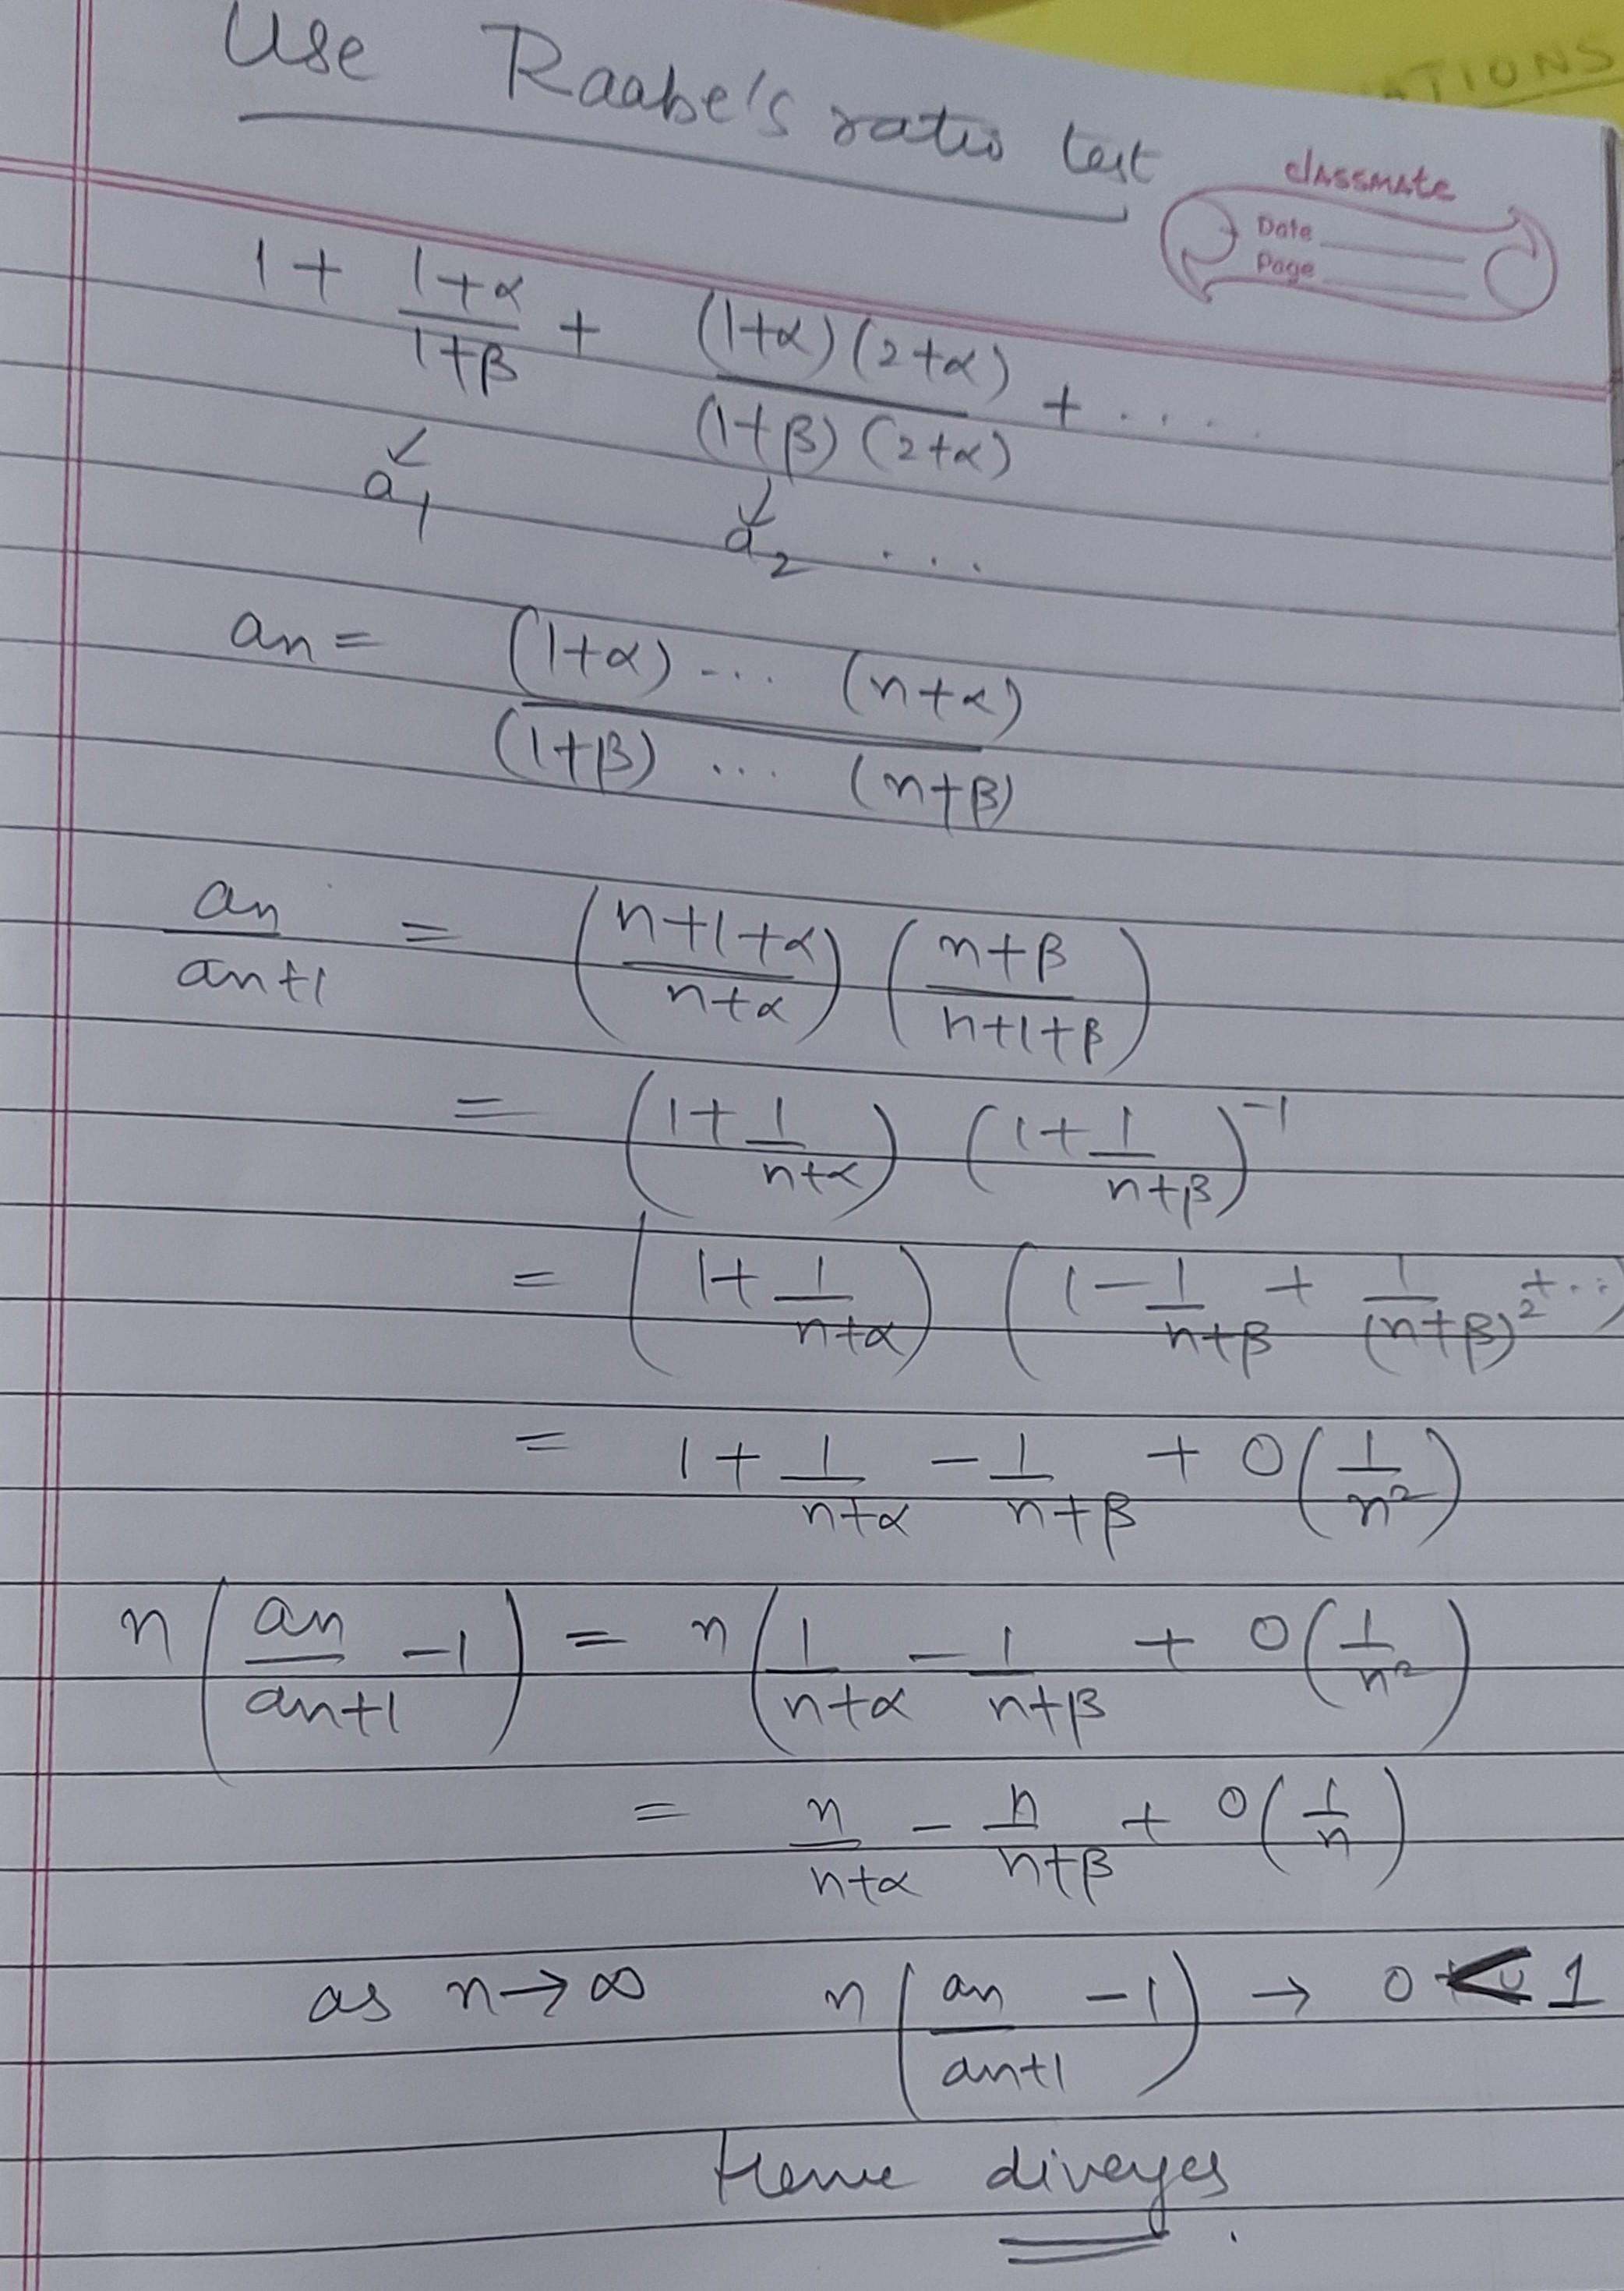 ATIONS
Use Raabe's ratio test
classmate
Date
Page
1 + (1+α)/(1+β) + ((1+α)(2+α))/((1+β)(2+α)) + ....
a₁ a₂ ...
an = ((1+α) ... (n+α))/((1+β) ... (n+β))
an/an+1 = ((n+1+α)/(n+α)) ((n+β)/(n+1+β))
= (1 + 1/(n+α)) (1 + 1/(n+β))⁻¹
= (1 + 1/(n+α)) (1 - 1/(n+β) + 1/(n+β)² + ...)
= 1 + 1/(n+α) - 1/(n+β) + O(1/n²)
n(an/an+1 - 1) = n(1/(n+α) - 1/(n+β) + O(1/n²)
= n/(n+α) - n/(n+β) + O(1/n)
as n→∞ n(an/an+1 - 1) → 0 < 1
Hence diverges.